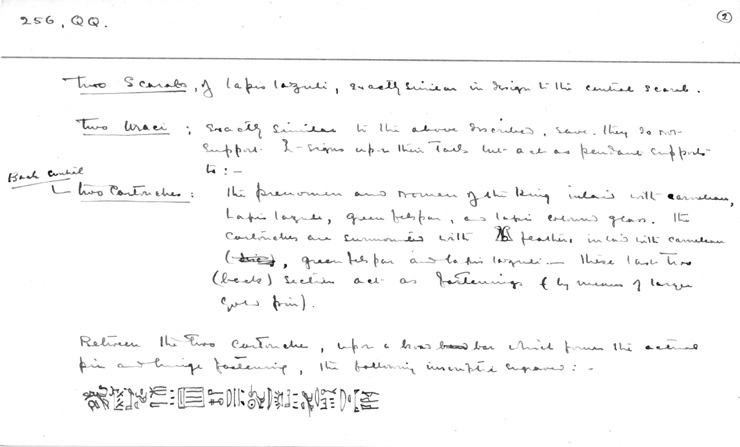 256, QQ.
2
Two Scarabs, of lapis lazuli, exactly similar in design to the central scarab.
Two Uraei; exactly similar to the above described, save they do not
support -signs upon their tails but act as pendant supports
to: -
Back central
Two Cartouches: The prenomen and nomen of the King inlaid with carnelian,
lapis lazuli, green felspar, and lapis coloured glass. The
cartouches are surmounted with feathers inlaid with carnelian
, green felspar and lapis lazuli. — These last two
(back) sections act as fastenings (by means of larger
gold pin).
Between the two cartouches, upon a broad bar which forms the actual
pin and hinge fastening, the following inscription engraved: -